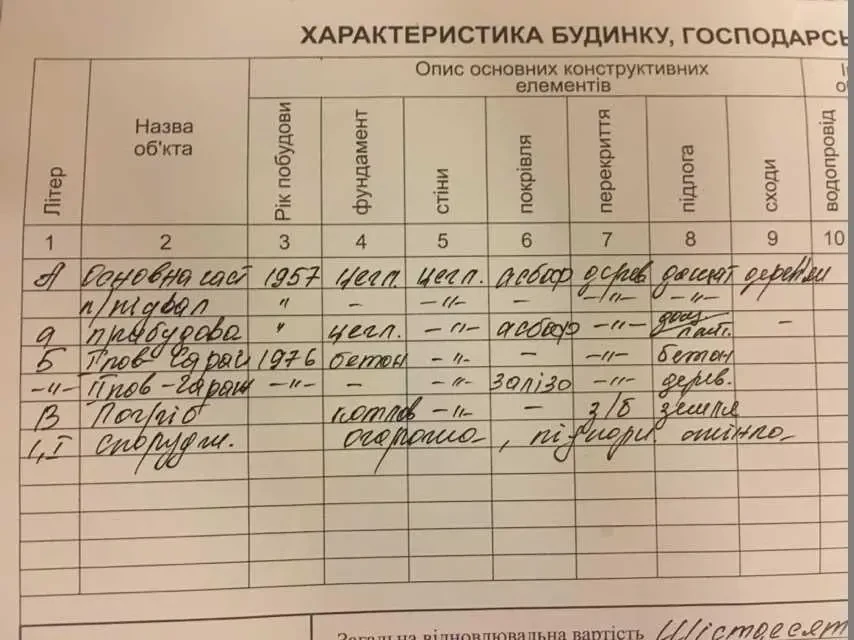 ХАРАКТЕРИСТИКА БУДИНКУ, ГОСПОДАРСЬ
Опис основних конструктивних
елементів
Літер
Назва
об'єкта
Рік побудови
фундамент
стіни
покрівля
перекриття
підлога
сходи
водопровід
1 2 3 4 5 6 7 8 9 10
А Основна част 1957 цегл. цегл. асбоф дерев дощат дерев'ян
п/підвал " - -"- - -"- -"-
а прибудова " цегл. -"- асбоф -"- дощ -
Б І пов-Сарай 1976 бетон -"- - -"- бетон
-"- ІІ пов-Гараж -"- - -"- залізо -"- дерев.
В Погріб котлов -"- - з/б земля
1, І споруди. огорожа , підпорн.
Загальна відновлювальна вартість Шістдесят